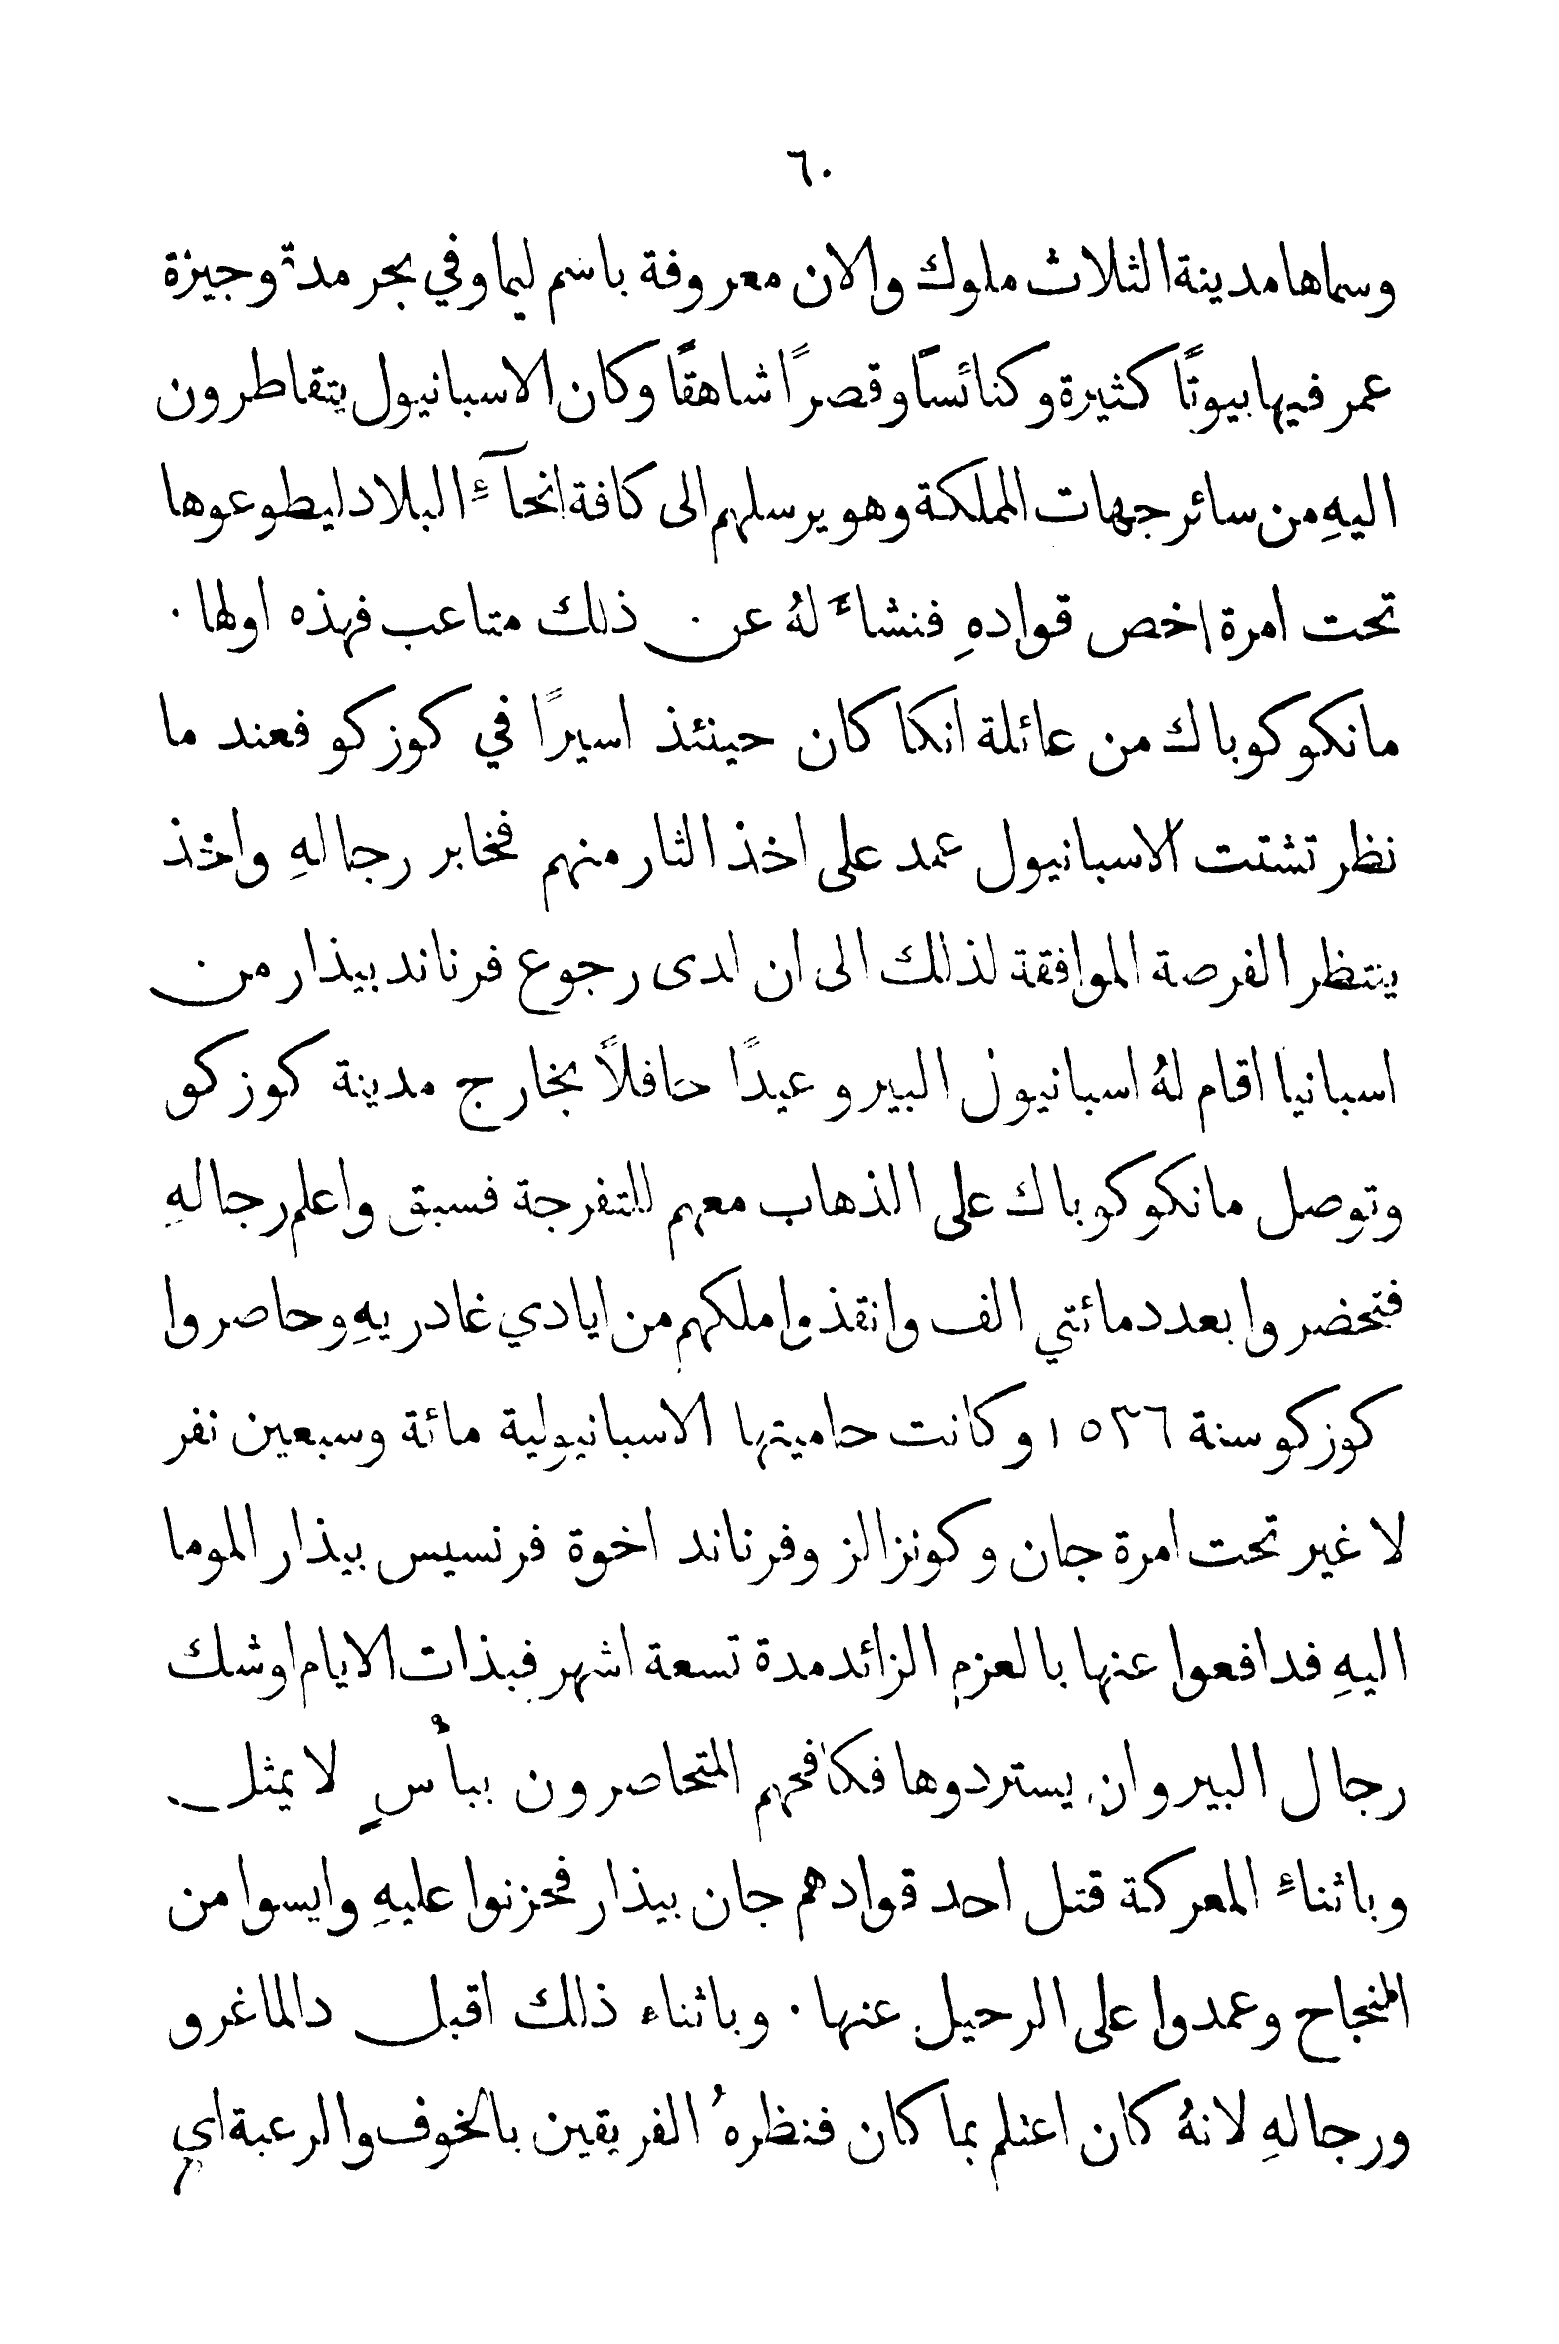 ٦٠
وسماها مدينة الثلاث ملوك والان معروفة باسم ليما وفي بحر مدة وجيزة
عمر فيها بيوتًا كثيرة وكنائسًا وقصرًا شاهقًا وكان الاسبانيول يتقاطرون
اليهِ من سائر جهات المملكة وهو يرسلهم الى كافة انحآءِ البلاد ليطوعوها
تحت امرة اخص قوادهِ فنشاءَ لهُ عن ذلك متاعب فهذه اولها ·
مانكو كوباك من عائلة انكا كان حينئذ اسيرًا في كوزكو فعند ما
نظر تشتت الاسبانيول عمد على اخذ الثار منهم فخابر رجالهِ واخذ
ينتظر الفرصة الموافقة لذلك الى ان لدى رجوع فرناند بيذار من
اسبانيا اقام لهُ اسبانيول البيرو عيدًا حافلاً بخارج مدينة كوزكو
وتوصل مانكو كوباك على الذهاب معهم للتفرجة فسبق واعلم رجالهِ
فتحضروا بعدد مائتي الف وانقذوا ملكهم من ايادي غادريهِ وحاصروا
كوزكو سنة ١٥٣٦ وكانت حاميتها الاسبانيولية مائة وسبعين نفر
لا غير تحت امرة جان وكونزالز وفرناند اخوة فرنسيس بيذار الموما
اليهِ فدافعوا عنها بالعزم الزائد مدة تسعة اشهر فبذات الايام اوشك
رجال البيرو ان يستردوها فكافحهم المتحاصرون ببأسٍ لا يمثل
وباثناءِ المعركة قتل احد قوادهم جان بيذار فحزنوا عليهِ وايسوا من
النجاح وعمدوا على الرحيل عنها · وباثناء ذلك اقبل دالماغرو
ورجالهِ لانهُ كان اعتلم بما كان فنظرهُ الفريقين بالخوف والرعبة اي